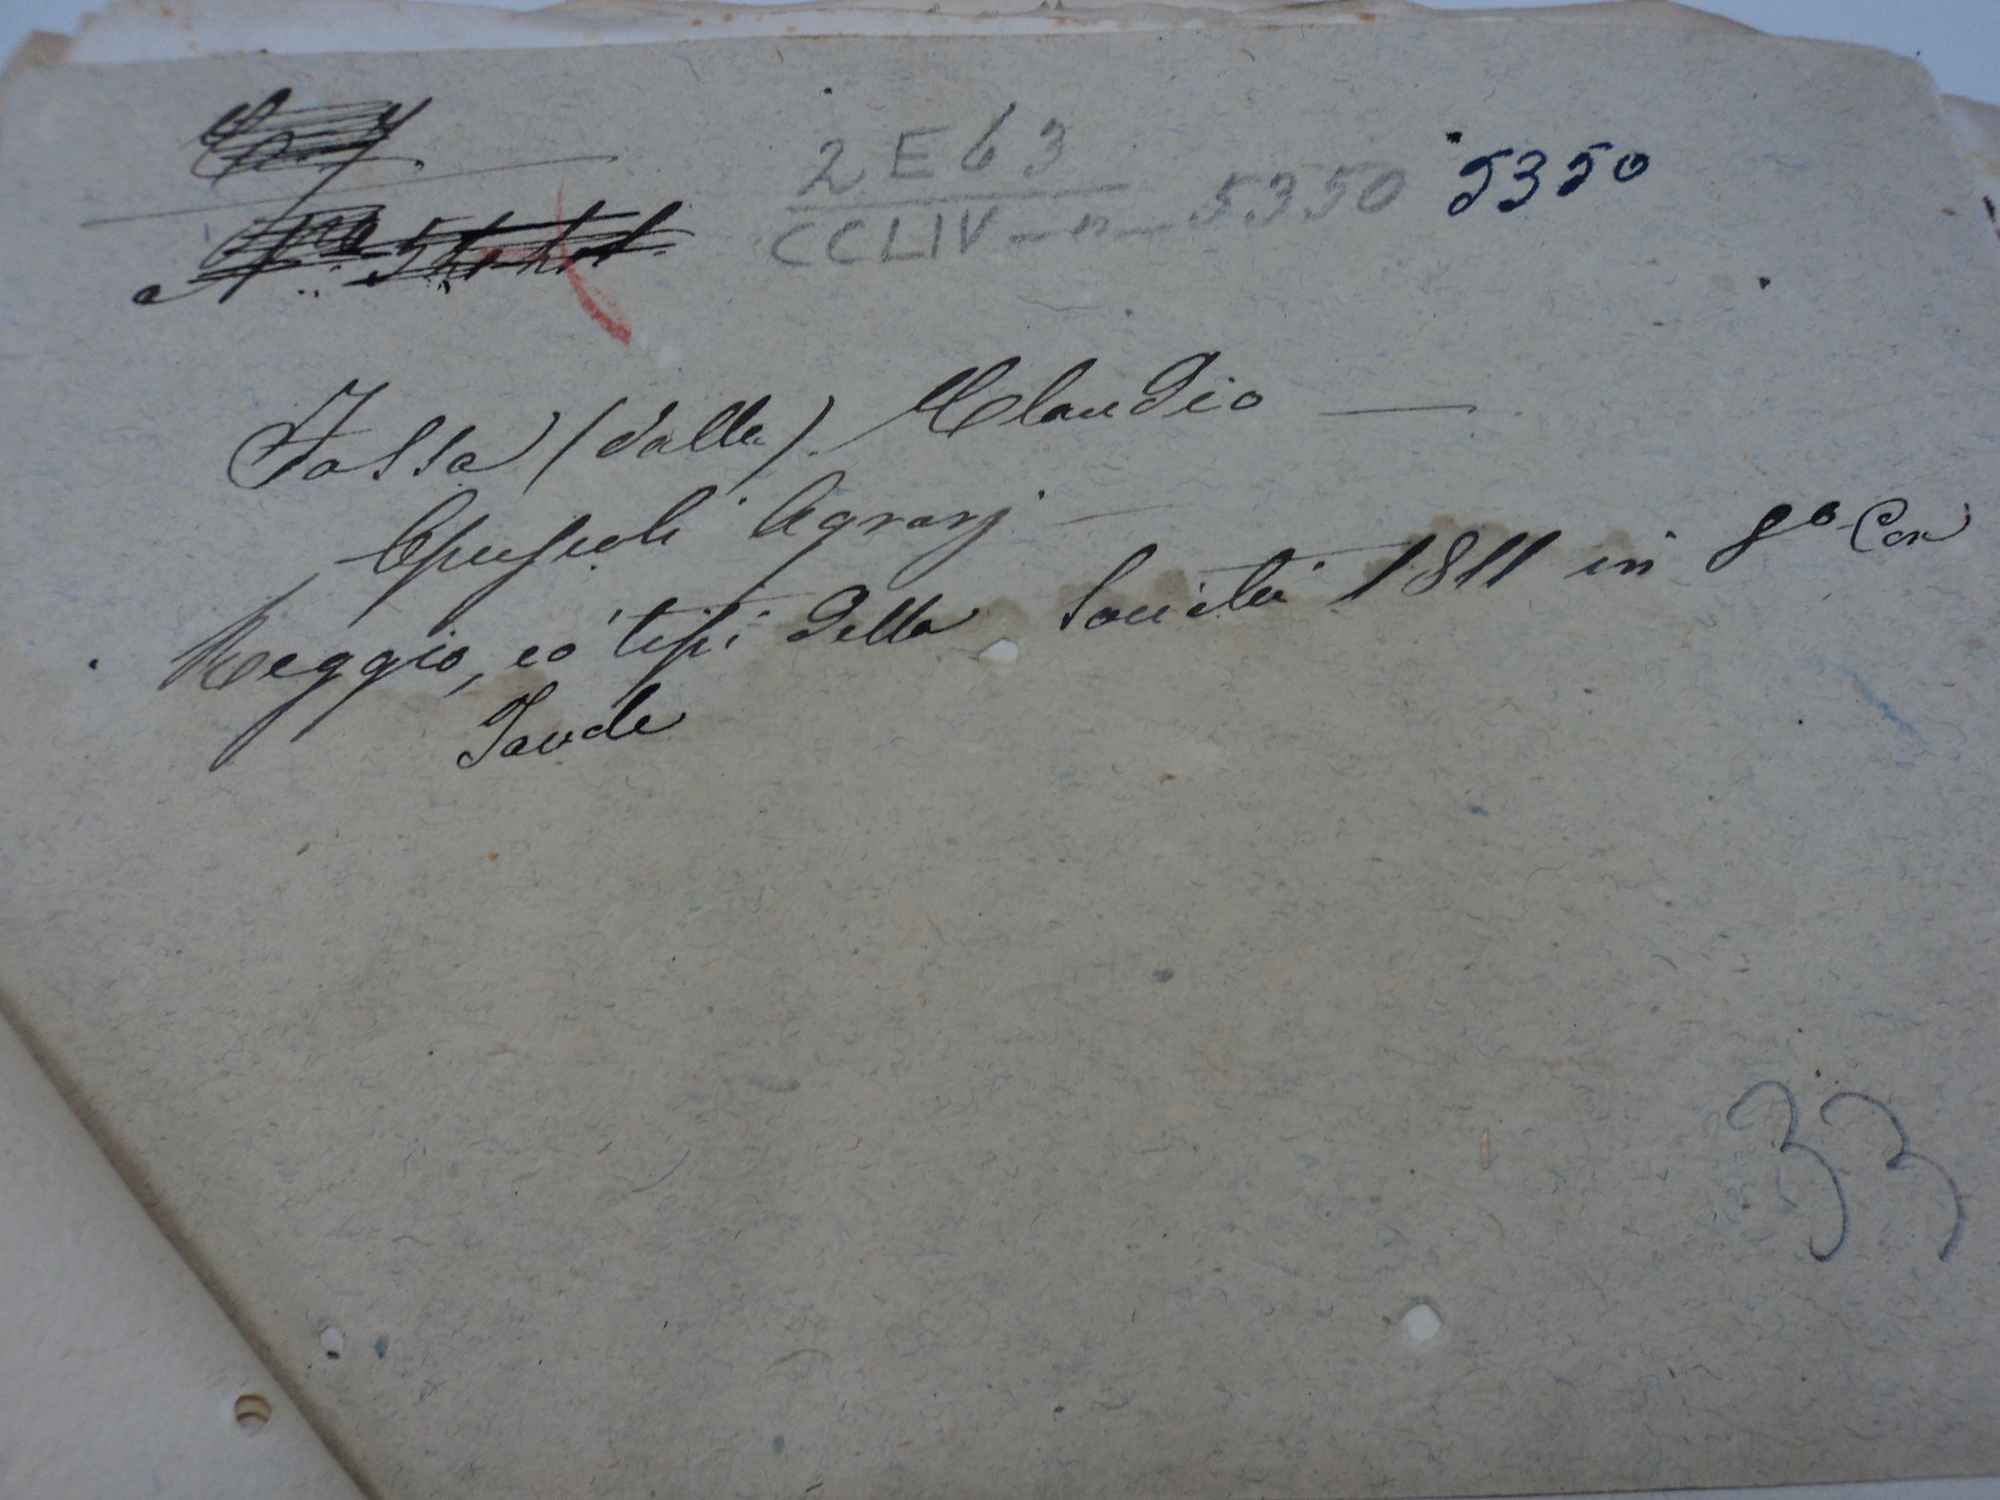 2 E 63 5350
CCLIV - n - 5350
Fossa (dalla). Claudio —
Opuscoli Agrarj —
Reggio, co' tipi della Società 1811 in 8º Con
Tavole
33